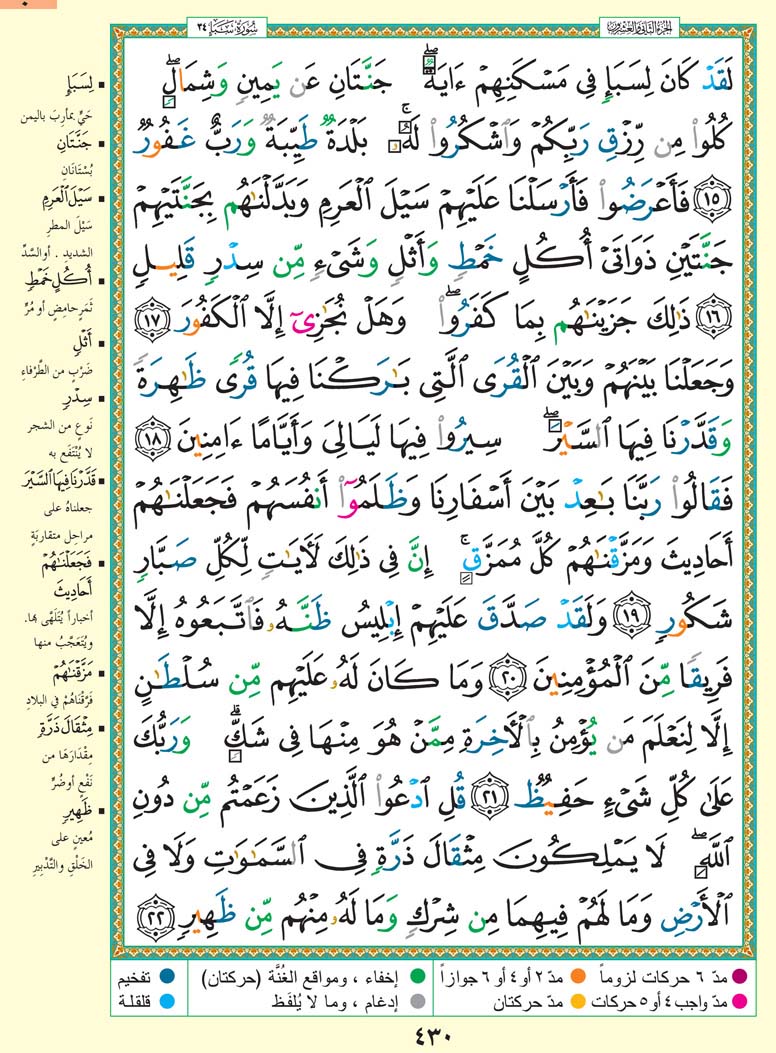 الجزء الثاني والعشرون
سورة سبأ ٣٤
لَقَدْ كَانَ لِسَبَإٍ فِي مَسْكَنِهِمْ ءَايَةٌ ۖ جَنَّتَانِ عَن يَمِينٍ وَشِمَالٍ ۖ
كُلُوا۟ مِن رِّزْقِ رَبِّكُمْ وَٱشْكُرُوا۟ لَهُۥ ۚ بَلْدَةٌ طَيِّبَةٌ وَرَبٌّ غَفُورٌ
﴿١٥﴾ فَأَعْرَضُوا۟ فَأَرْسَلْنَا عَلَيْهِمْ سَيْلَ ٱلْعَرِمِ وَبَدَّلْنَٰهُم بِجَنَّتَيْهِمْ
جَنَّتَيْنِ ذَوَاتَىْ أُكُلٍ خَمْطٍ وَأَثْلٍ وَشَىْءٍ مِّن سِدْرٍ قَلِيلٍ
﴿١٦﴾ ذَٰلِكَ جَزَيْنَٰهُم بِمَا كَفَرُوا۟ ۖ وَهَلْ نُجَٰزِىٓ إِلَّا ٱلْكَفُورَ ﴿١٧﴾
وَجَعَلْنَا بَيْنَهُمْ وَبَيْنَ ٱلْقُرَى ٱلَّتِى بَٰرَكْنَا فِيهَا قُرًى ظَٰهِرَةً
وَقَدَّرْنَا فِيهَا ٱلسَّيْرَ ۖ سِيرُوا۟ فِيهَا لَيَالِىَ وَأَيَّامًا ءَامِنِينَ ﴿١٨﴾
فَقَالُوا۟ رَبَّنَا بَٰعِدْ بَيْنَ أَسْفَارِنَا وَظَلَمُوٓا۟ أَنفُسَهُمْ فَجَعَلْنَٰهُمْ
أَحَادِيثَ وَمَزَّقْنَٰهُمْ كُلَّ مُمَزَّقٍ ۚ إِنَّ فِى ذَٰلِكَ لَءَايَٰتٍ لِّكُلِّ صَبَّارٍ
شَكُورٍ ﴿١٩﴾ وَلَقَدْ صَدَّقَ عَلَيْهِمْ إِبْلِيسُ ظَنَّهُۥ فَٱتَّبَعُوهُ إِلَّا
فَرِيقًا مِّنَ ٱلْمُؤْمِنِينَ ﴿٢٠﴾ وَمَا كَانَ لَهُۥ عَلَيْهِم مِّن سُلْطَٰنٍ
إِلَّا لِنَعْلَمَ مَن يُؤْمِنُ بِٱلْءَاخِرَةِ مِمَّنْ هُوَ مِنْهَا فِى شَكٍّ ۗ وَرَبُّكَ
عَلَىٰ كُلِّ شَىْءٍ حَفِيظٌ ﴿٢١﴾ قُلِ ٱدْعُوا۟ ٱلَّذِينَ زَعَمْتُم مِّن دُونِ
ٱللَّهِ ۖ لَا يَمْلِكُونَ مِثْقَالَ ذَرَّةٍ فِى ٱلسَّمَٰوَٰتِ وَلَا فِى
ٱلْأَرْضِ وَمَا لَهُمْ فِيهِمَا مِن شِرْكٍ وَمَا لَهُۥ مِنْهُم مِّن ظَهِيرٍ ﴿٢٢﴾
▪ لِسَبَإٍ
حَيٍّ بمأربَ باليمن
▪ جَنَّتَانِ
بُسْتَانَانِ
▪ سَيْلَ ٱلْعَرِمِ
سَيْلَ المطر
الشديد . أو السّدّ
▪ أُكُلٍ خَمْطٍ
ثَمَرٍ حامِضٍ أو مُرٍّ
▪ أَثْلٍ
ضَرْبٍ من الطَّرْفاءِ
▪ سِدْرٍ
نَوعٍ من الشجر
لا يُنْتَفَع به
▪ قَدَّرْنَا فِيهَا ٱلسَّيْرَ
جعلناهُ على
مراحِلَ متقاربَةٍ
▪ فَجَعَلْنَٰهُمْ
أَحَادِيثَ
أخباراً يُتَلَهَّى بها.
ويُتَعَجَّبُ منها
▪ مَزَّقْنَٰهُمْ
فَرَّقْنَاهُمْ في البلاد
▪ مِثْقَالَ ذَرَّةٍ
مِقْدَارَهَا من
نَفْعٍ أو ضُرٍّ
▪ ظَهِيرٍ
مُعينٍ على
الخَلْقِ والتَّدْبيرِ
مدّ ٦ حركات لزوماً
مدّ ٢ أو ٤ أو ٦ جوازاً
إخفاء ، ومواقع الغُنَّة (حركتان)
تفخيم
مدّ واجب ٤ أو ٥ حركات
مدّ حركتان
إدغام ، وما لا يُلفَظ
قلقلة
٤٣٠